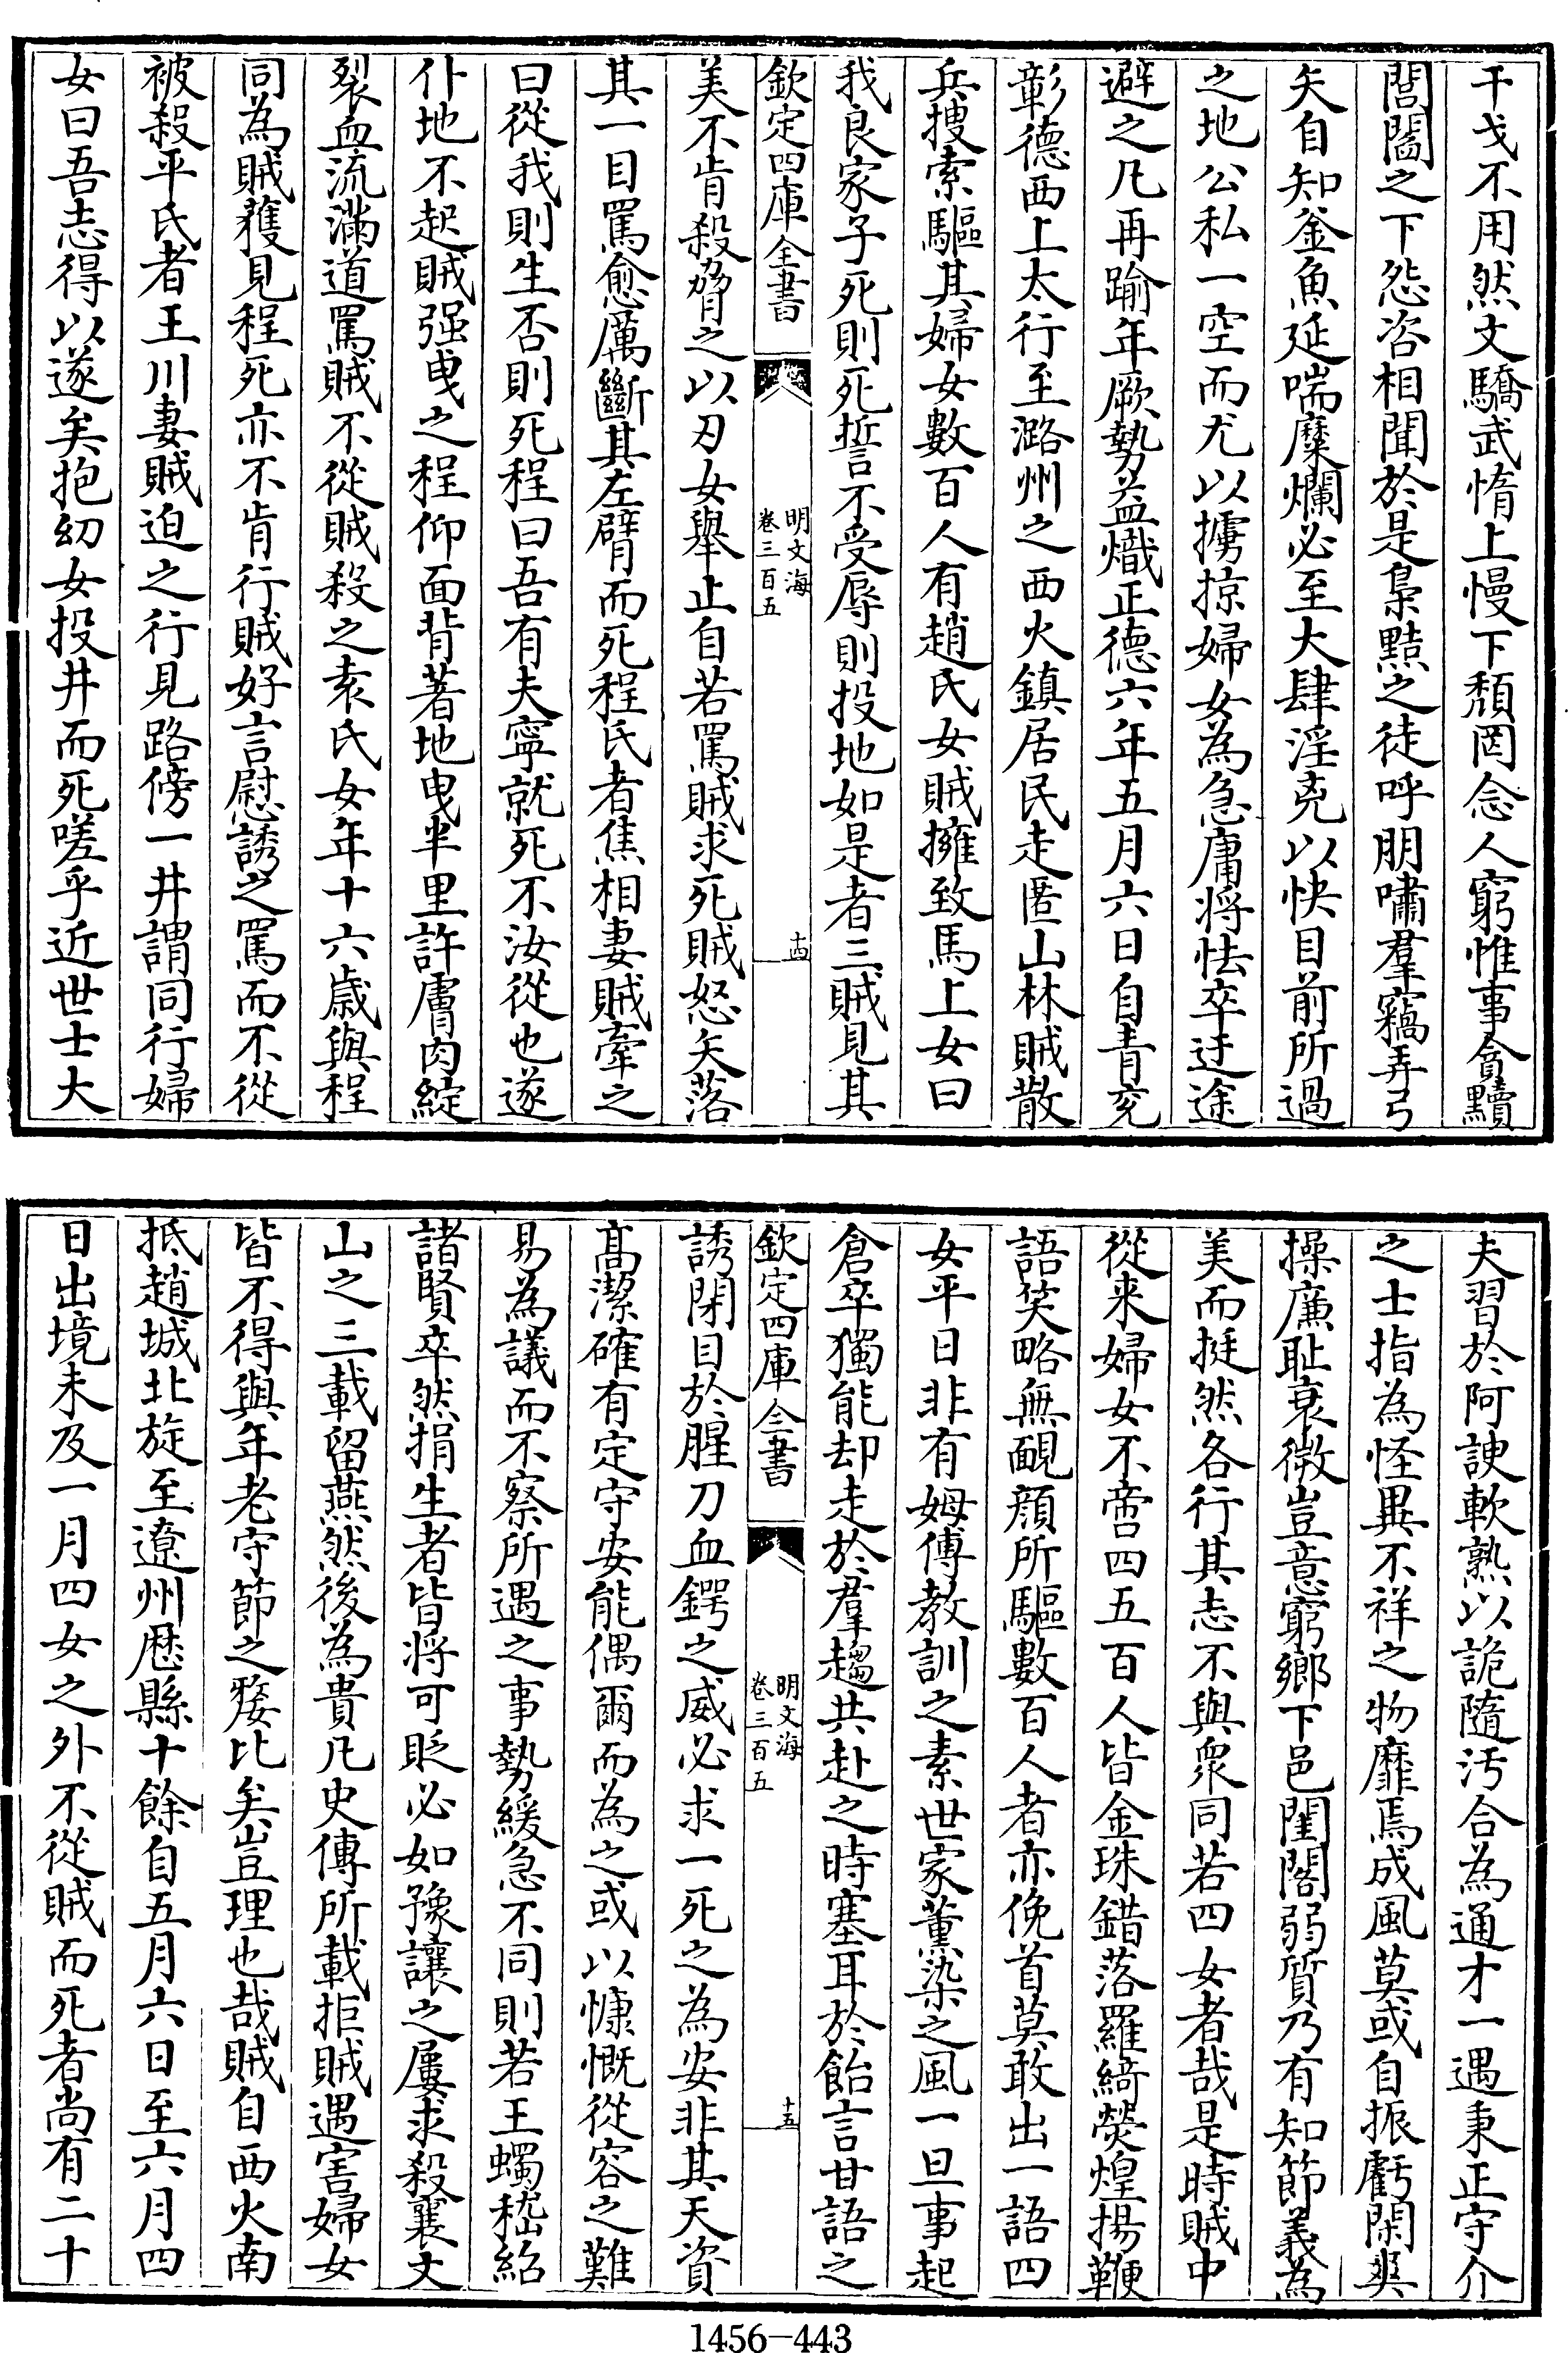 干戈不用然文驕武惰上慢下頹罔念人窮惟事貪黷
閭閻之下怨咨相聞於是梟黠之徒呼朋嘯羣竊弄弓
矢自知釜魚延喘糜爛必至大肆淫兇以快目前所過
之地公私一空而尤以擄掠婦女為急庸將怯卒迂途
避之凡再踰年厥勢益熾正德六年五月六日自青兗
彰德西上太行至潞州之西火鎮居民走匿山林賊散
兵搜索驅其婦女數百人有趙氏女賊擁致馬上女曰
我良家子死則死誓不受辱則投地如是者三賊見其
欽定四庫全書
明文海
卷三百五
十四
美不肯殺脅之以刃女舉止自若罵賊求死賊怒矢落
其一目罵愈厲斷其左臂而死程氏者焦相妻賊牽之
曰從我則生否則死程曰吾有夫寧就死不汝從也遂
仆地不起賊强曳之程仰面背著地曳半里許膚肉綻
裂血流滿道罵賊不從賊殺之袁氏女年十六歲與程
同為賊獲見程死亦不肯行賊好言慰誘之罵而不從
被殺平氏者王川妻賊迫之行見路傍一井謂同行婦
女曰吾志得以遂矣抱幼女投井而死嗟乎近世士大
夫習於阿諛軟熟以詭隨汚合為通才一遇秉正守介
之士指為怪異不祥之物靡焉成風莫或自振虧閑爽
操廉恥衰微豈意窮鄉下邑閨閤弱質乃有知節義為
美而挺然各行其志不與衆同若四女者哉是時賊中
從来婦女不啻四五百人皆金珠錯落羅綺熒煌揚鞭
語笑略無靦顔所驅數百人者亦俛首莫敢出一語四
女平日非有姆傅教訓之素世家薰染之風一旦事起
倉卒獨能却走於羣趨共赴之時塞耳於飴言甘語之
欽定四庫全書
明文海
卷三百五
十五
誘閉目於腥刀血鍔之威必求一死之為安非其天資
高潔確有定守安能偶爾而為之或以慷慨從容之難
易為議而不察所遇之事勢緩急不同則若王蠋嵇紹
諸賢卒然捐生者皆將可貶必如豫讓之屢求殺襄文
山之三載留燕然後為貴凡史傳所載拒賊遇害婦女
皆不得與年老守節之嫠比矣豈理也哉賊自西火南
抵趙城北旋至遼州歴縣十餘自五月六日至六月四
日出境未及一月四女之外不從賊而死者尚有二十
1456-443